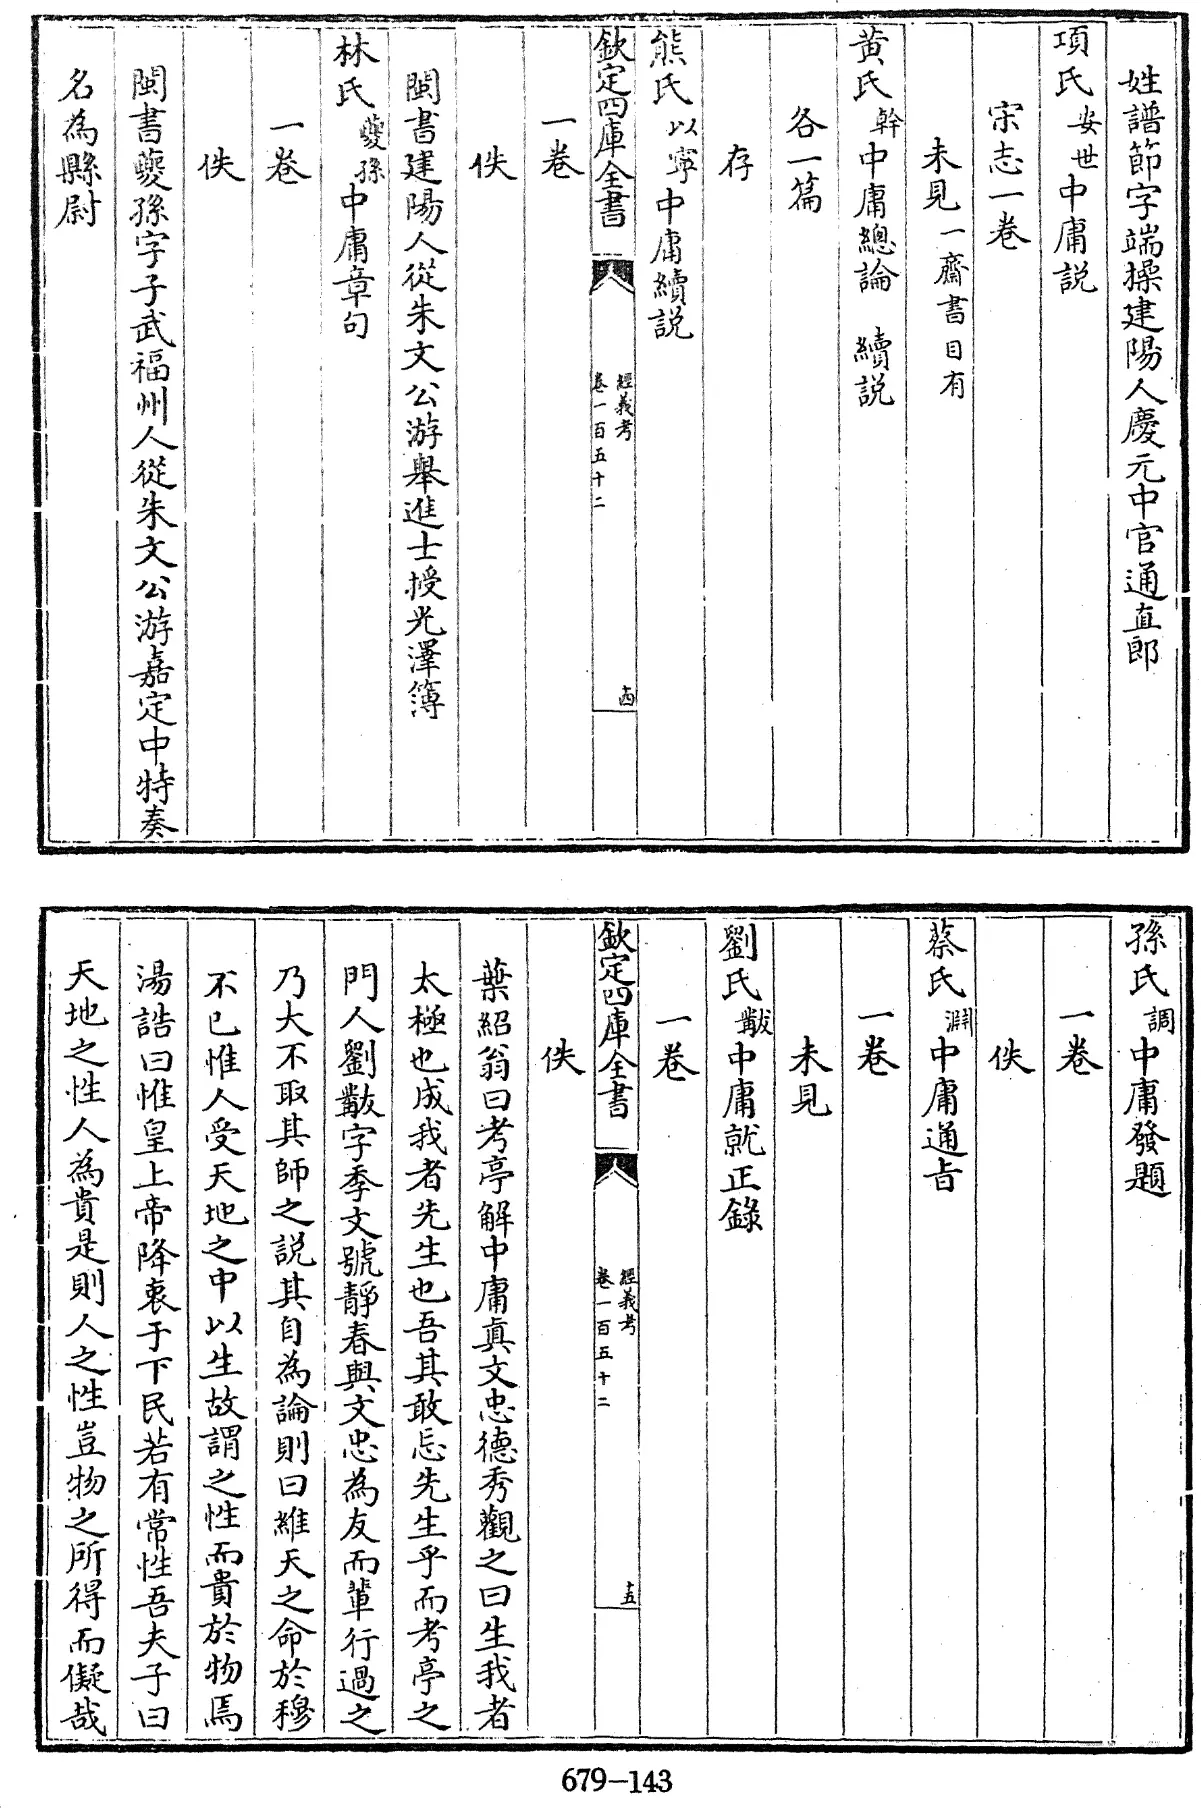 姓譜節字端操建陽人慶元中官通直郎
項氏安世中庸説
宋志一卷
未見一齋書目有
黄氏榦中庸總論　續説
各一篇
存
熊氏以寧中庸續説
欽定四庫全書
經義考
卷一百五十二
十四
一卷
佚
閩書建陽人從朱文公游舉進士授光澤簿
林氏夔孫中庸章句
一卷
佚
閩書夔孫字子武福州人從朱文公游嘉定中特奏
名為縣尉
孫氏調中庸發題
一卷
佚
蔡氏淵中庸通旨
一卷
未見
劉氏黻中庸就正錄
一卷
欽定四庫全書
經義考
卷一百五十二
十五
佚
葉紹翁曰考亭解中庸真文忠德秀觀之曰生我者
太極也成我者先生也吾其敢忘先生乎而考亭之
門人劉黻字季文號靜春與文忠為友而輩行過之
乃大不取其師之説其自為論則曰維天之命於穆
不已惟人受天地之中以生故謂之性而貴於物焉
湯誥曰惟皇上帝降衷于下民若有常性吾夫子曰
天地之性人為貴是則人之性豈物之所得而儗哉
679-143